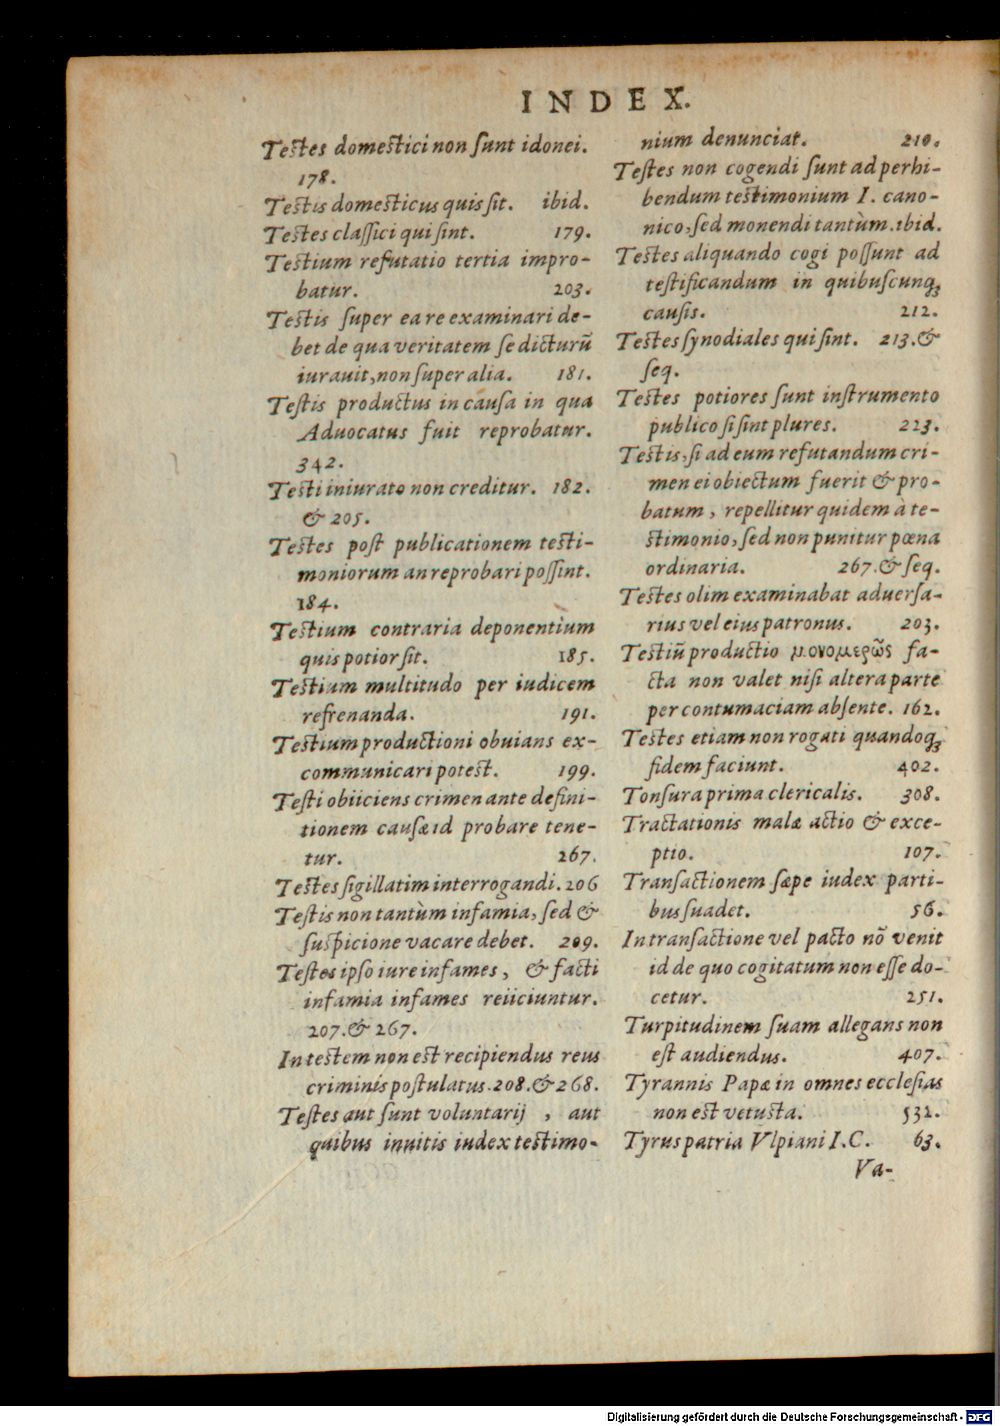 INDEX.
Testes domestici non sunt idonei.
178.
Testis domesticus quis sit. ibid.
Testes classici qui sint. 179.
Testium refutatio tertia impro-
batur. 203.
Testis super ea re examinari de-
bet de qua veritatem se dicturũ
iurauit, non super alia. 181.
Testis productus in causa in qua
Aduocatus fuit reprobatur.
342.
Testi iniurato non creditur. 182.
& 205.
Testes post publicationem testi-
moniorum an reprobari possint.
184.
Testium contraria deponentium
quis potior sit. 185.
Testium multitudo per iudicem
refrenanda. 191.
Testium productioni obuians ex-
communicari potest. 199.
Testi obiiciens crimen ante defini-
tionem causæ id probare tene-
tur. 267.
Testes sigillatim interrogandi. 206
Testis non tantùm infamia, sed &
suspicione vacare debet. 209.
Testes ipso iure infames, & facti
infamia infames reiiciuntur.
207. & 267.
In testem non est recipiendus reus
criminis postulatus. 208. & 268.
Testes aut sunt voluntarij , aut
quibus inuitis iudex testimo-
nium denunciat. 210.
Testes non cogendi sunt ad perhi-
bendum testimonium I. cano-
nico, sed monendi tantùm. ibid.
Testes aliquando cogi possunt ad
testificandum in quibuscunq;
causis. 212.
Testes synodiales qui sint. 213. &
seq.
Testes potiores sunt instrumento
publico si sint plures. 223.
Testis, si ad eum refutandum cri-
men ei obiectum fuerit & pro-
batum, repellitur quidem à te-
stimonio, sed non punitur pœna
ordinaria. 267. & seq.
Testes olim examinabat aduersa-
rius vel eius patronus. 203.
Testiũ productio μονομερῶς fa-
cta non valet nisi altera parte
per contumaciam absente. 162.
Testes etiam non rogati quandoq;
fidem faciunt. 402.
Tonsura prima clericalis. 308.
Tractationis malæ actio & exce-
ptio. 107.
Transactionem sæpe iudex parti-
bus suadet. 56.
In transactione vel pacto nõ venit
id de quo cogitatum non esse do-
cetur. 251.
Turpitudinem suam allegans non
est audiendus. 407.
Tyrannis Papæ in omnes ecclesias
non est vetusta. 532.
Tyrus patria Vlpiani I.C. 63.
Va-
Digitalisierung gefördert durch die Deutsche Forschungsgemeinschaft - DFG